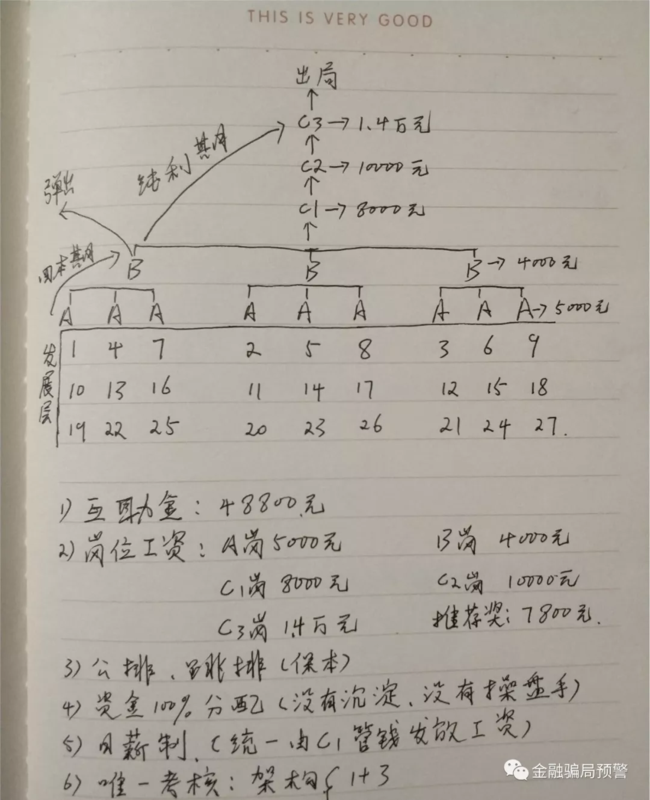 THIS IS VERY GOOD
出局
C3→1.4万元
C2→10000元
C1→8000元
纯利其月
弹出
回本其月
B B B→4000元
A A A A A A A A A→5000元
发展层
1 4 7 2 5 8 3 6 9
10 13 16 11 14 17 12 15 18
19 22 25 20 23 26 21 24 27.
1) 互助金: 48800元
2) 岗位工资: A岗5000元 B岗 4000元
C1岗 8000元 C2岗 10000元
C3岗 1.4万元 推荐奖: 7800元.
3) 公排、跟排(保本)
4) 资金100%分配(没有沉淀、没有操盘手)
5) 月薪制.(统一由C1管钱发放工资)
6) 唯一考核: 架构 1+3
金融骗局预警